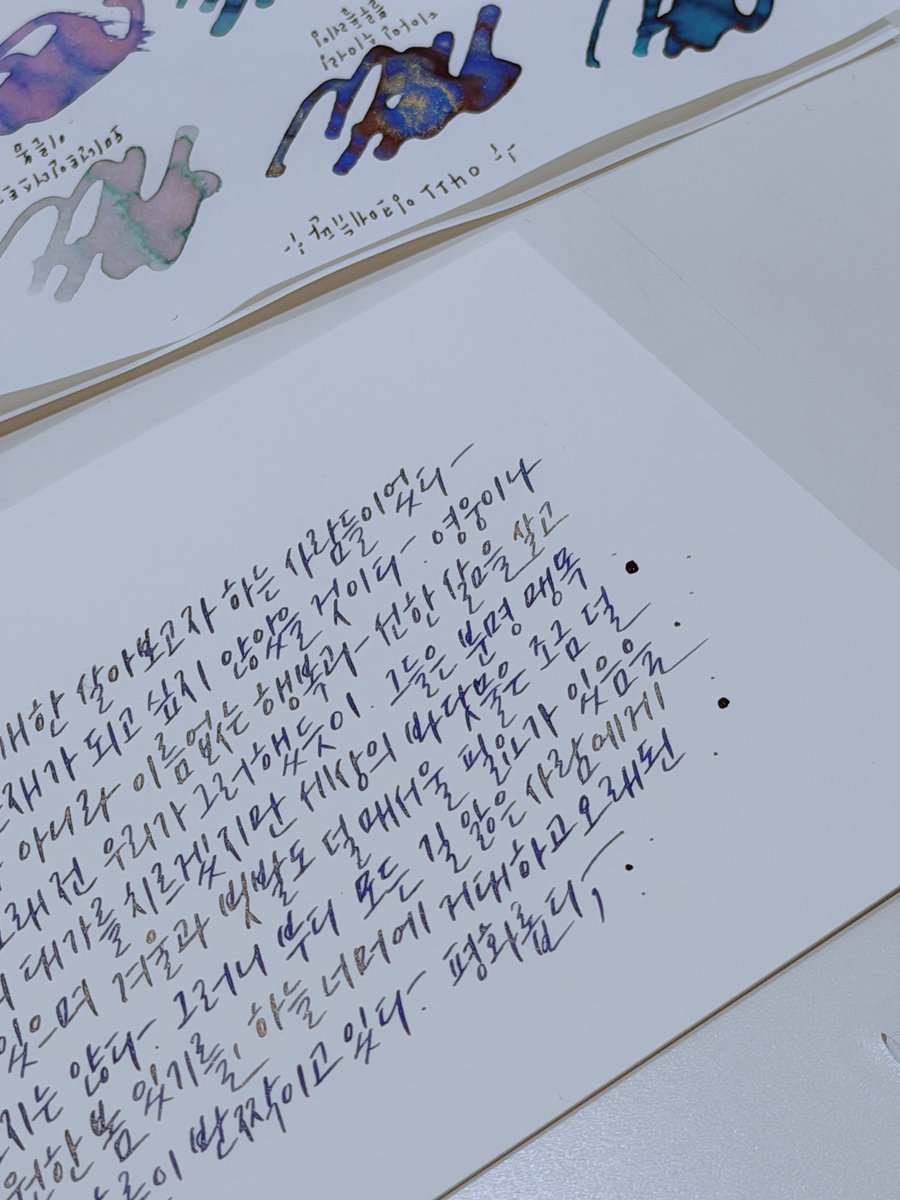 물들이
이런물들로
라미나 레이크
글씨불바이잉 TJHO
개한 살아보고자 하는 사람들이었다
존재가 되고 싶지 않았을 것이다 영웅이나
아니라 이름없는 행복과 선한 삶을 살고
오래전 우리가 그러했듯이. 그들은 분명 맹목
대가를 치르겠지만 세상의 바닷물은 조금 덜
있으며 겨울과 빗발도 덜 매서울 필요가 있음을
지는 않다. 그러니 부디 모든 길 잃은 사람에게
원한 봄 있기를, 하늘 너머에 거대하고 오래된
들이 반짝이고 있다. 평화롭다,